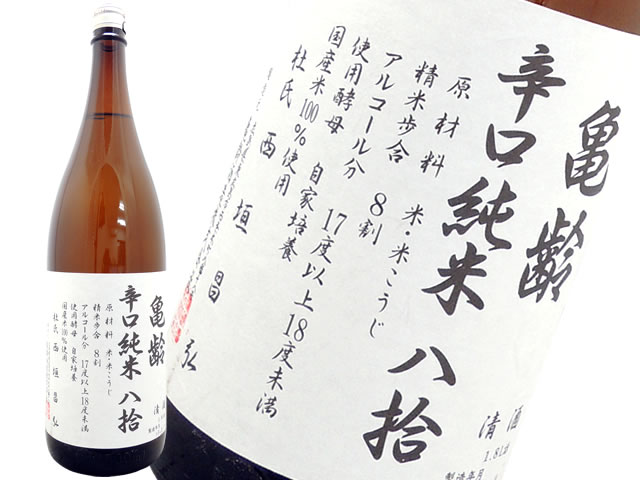 亀齢
辛口純米 八拾
原材料 米・米こうじ
精米歩合 8割
アルコール分 17度以上18度未満
使用酵母 自家培養
国産米100%使用
杜氏 西垣昌弘
清酒
1.8L
製造年月
亀齢
辛口純米 八拾
原材料 米・米こうじ
精米歩合 8割
アルコール分 17度以上18度未満
使用酵母 自家培養
国産米100%使用
杜氏 西垣昌弘
清酒